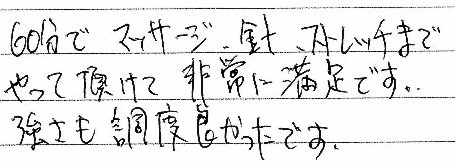 60分で マッサージ、針、ストレッチまで
やって頂けて 非常に満足です。
強さも調度良かったです。